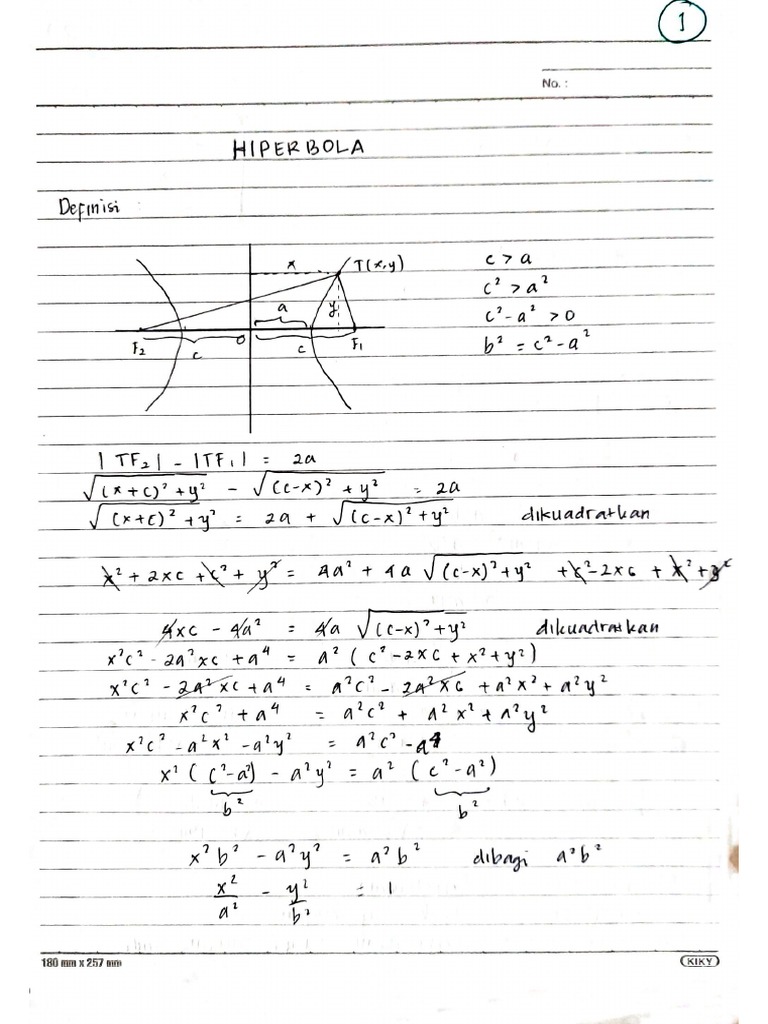 1
No. :
HIPERBOLA
Definisi :
x T(x,y)
a y
F₂ c O c F₁
c > a
c² > a²
c² - a² > 0
b² = c² - a²
|TF₂| - |TF₁| = 2a
√((x+c)² + y²) - √((c-x)² + y²) = 2a
√((x+c)² + y²) = 2a + √((c-x)² + y²) dikuadratkan
x² + 2xc + c² + y² = 4a² + 4a √((c-x)² + y²) + c² - 2xc + x² + y²
4xc - 4a² = 4a √((c-x)² + y²) dikuadratkan
x²c² - 2a²xc + a⁴ = a² (c² - 2xc + x² + y²)
x²c² - 2a²xc + a⁴ = a²c² - 2a²xc + a²x² + a²y²
x²c² + a⁴ = a²c² + a²x² + a²y²
x²c² - a²x² - a²y² = a²c² - a⁴
x² (c² - a²) - a²y² = a² (c² - a²)
b² b²
x²b² - a²y² = a²b² dibagi a²b²
x²/a² - y²/b² = 1
180 mm x 257 mm KIKY